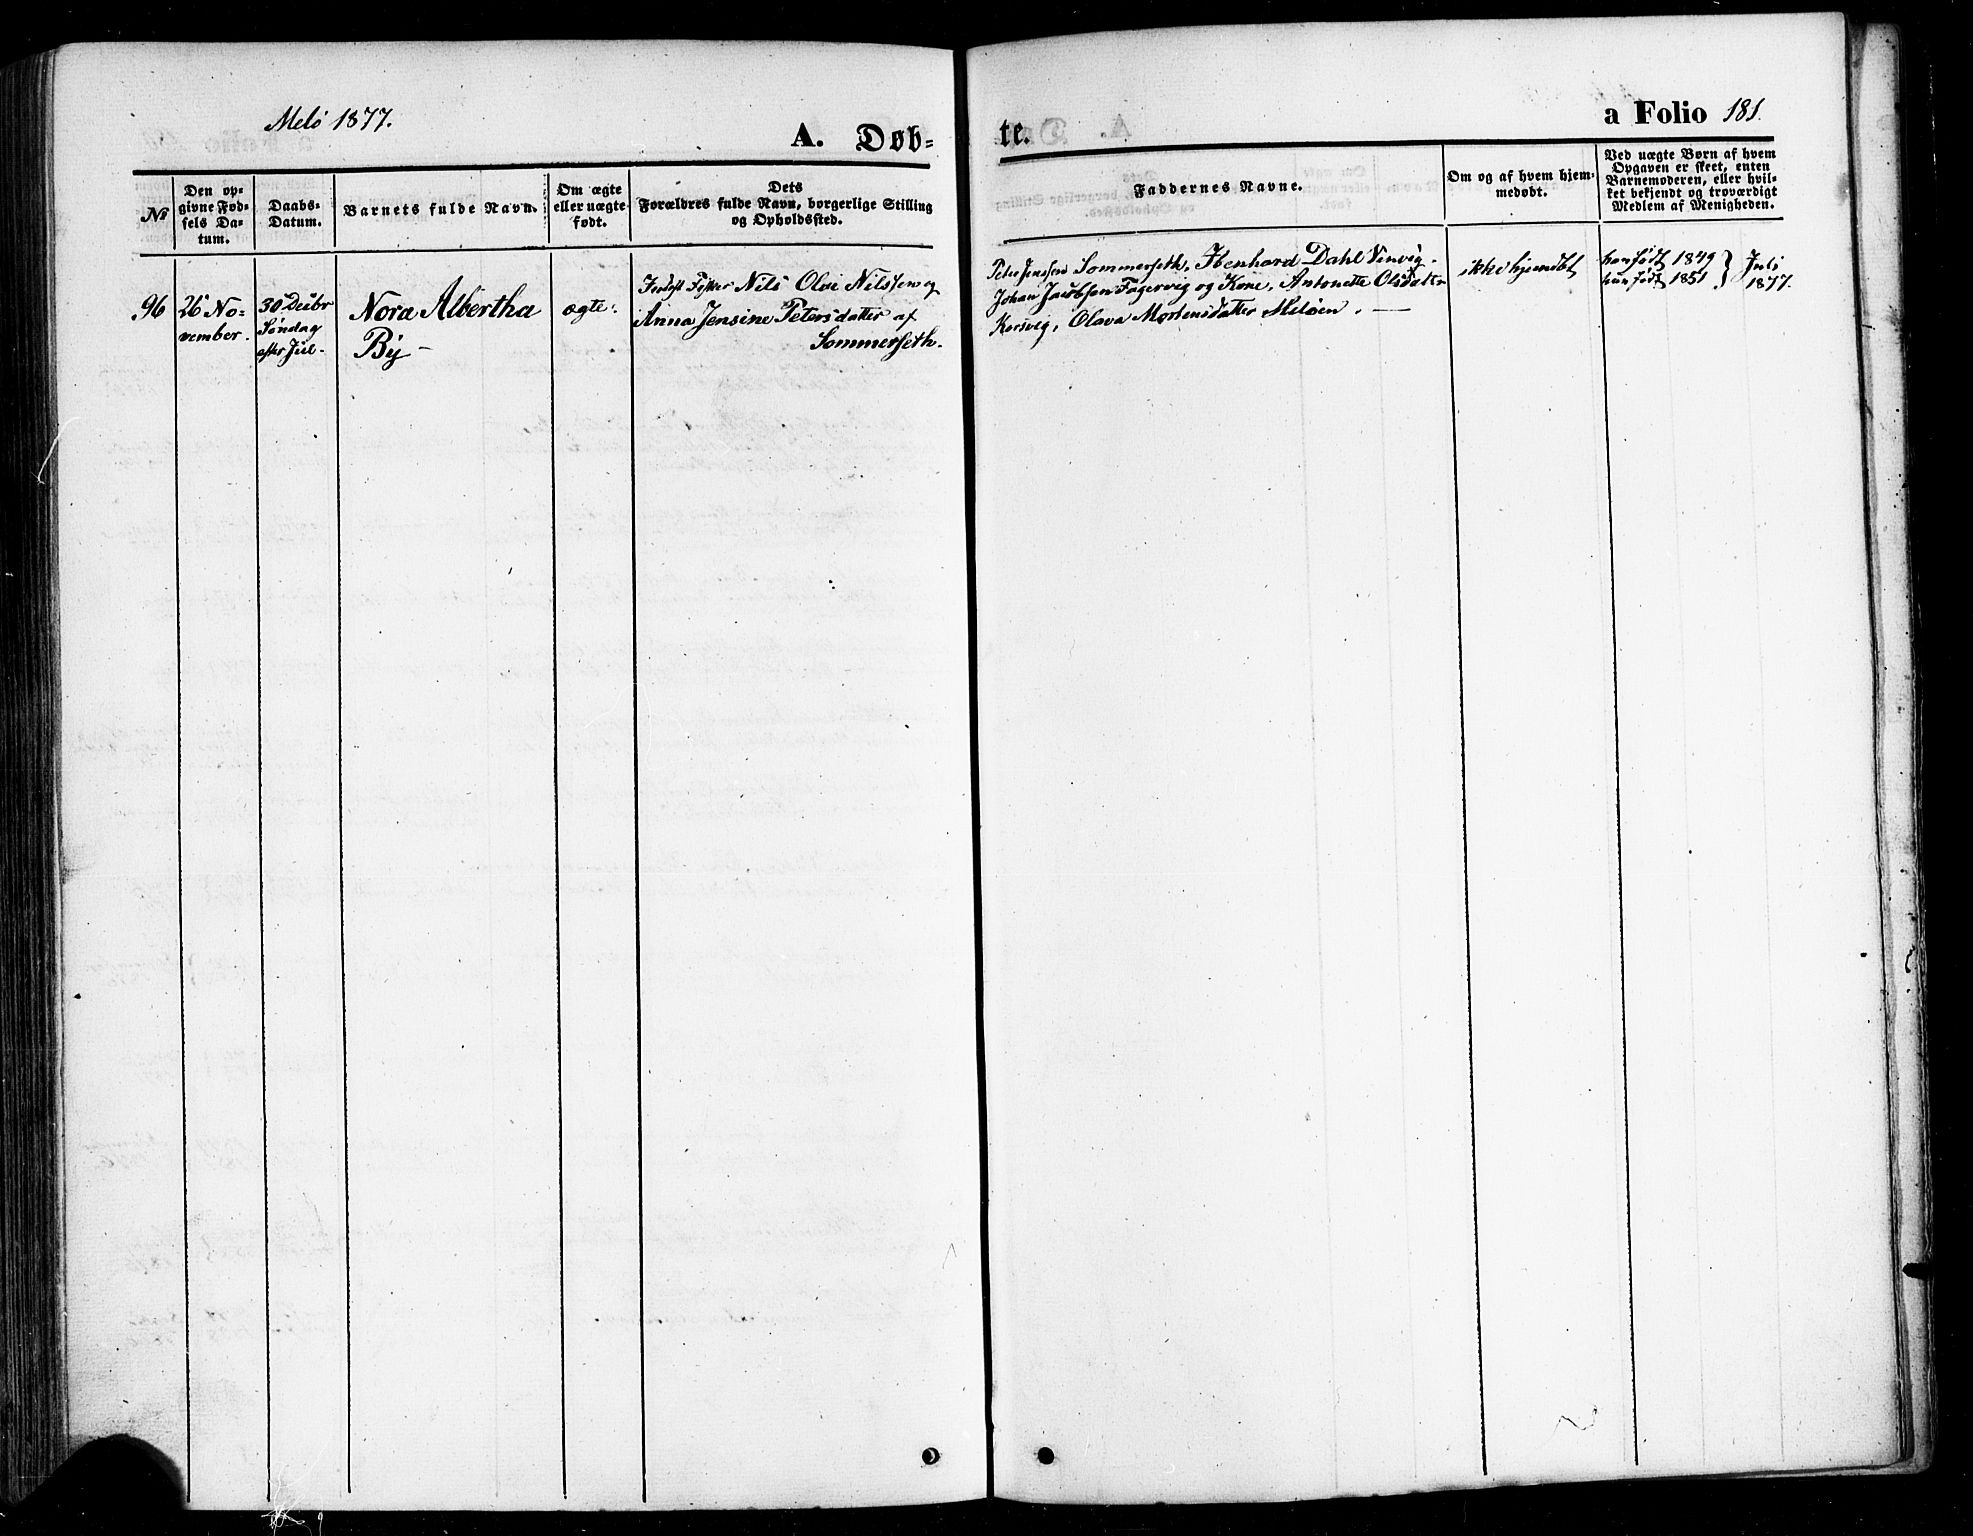 Melö 1877.
A. Døb-
te.
a Folio 181.
№
Den op-
givne Fød-
sels Da-
tum.
Daabs-
Datum.
Barnets fulde Navn.
Om ægte
eller uægte
født.
Dets
Forældres fulde Navn, borgerlige Stilling
og Opholdssted.
Faddernes Navne.
Om og af hvem hjem-
medøbt.
Ved uægte Børn af hvem
Opgaven er skeet, enten
Barnemoderen, eller hvil-
ket bekjendt og troværdigt
Medlem af Menigheden.
96
26 No-
vember.
30 Decbr
Søndag
efter Jul.
Nora Albertha
By
ægte
Fisker Nils Olai Nilssen og
Anna Jensine Petersdatter af
Sommerseth.
Peter Jenssen Sommerseth, Ibenhard Dahl
Johan Jacobsen Fagervig og Kone, Antonette Olsdatter
Korsvig, Olava Mortensdatter Melöen.
ikke hjemdbt
han født 1849
hun født 1851
Juli
1877.